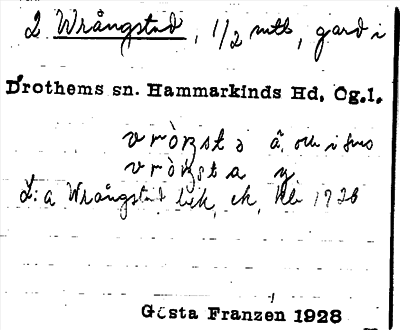 2 Wrångstad, 1/2 mtl, gård i
Drothems sn. Hammarkinds Hd, Ög.l.
vròŋsta â, och i sms
vròŋsta y
L: a Wrångstad 1728
Gösta Franzén 1928